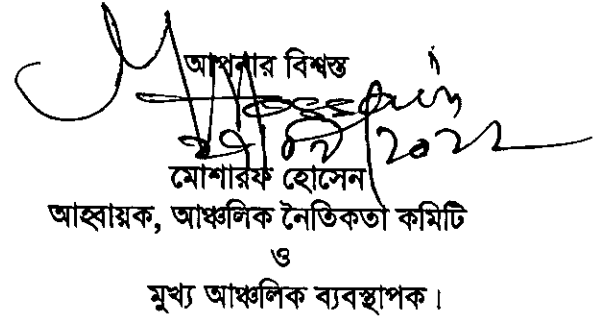 আপনার বিশ্বস্ত
মোশাররফ হোসেন
আহবায়ক, আঞ্চলিক নৈতিকতা কমিটি
ও
মুখ্য আঞ্চলিক ব্যবস্থাপক।